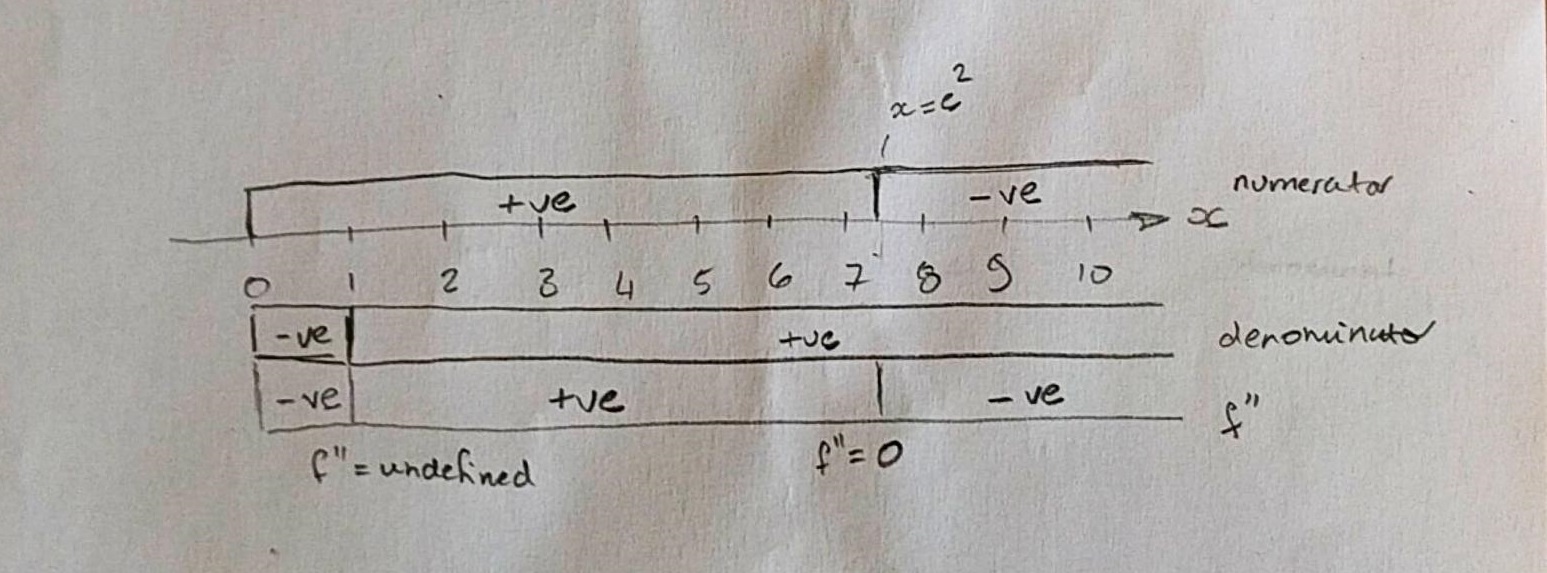 x=e²
+ve -ve numerator
x
0 1 2 3 4 5 6 7 8 9 10
-ve +ve denominator
-ve +ve -ve f"
f" = undefined f" = 0